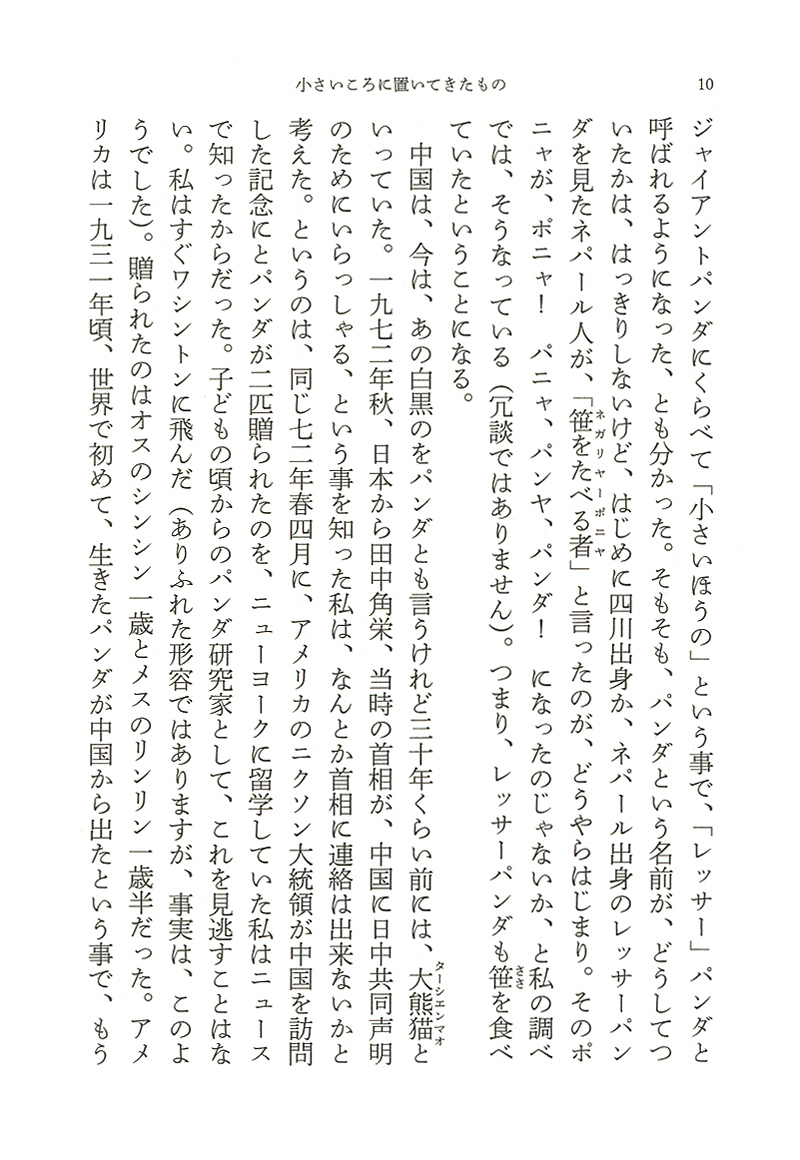 小さいころに置いてきたもの
10
ジャイアントパンダにくらべて「小さいほうの」という事で、「レッサー」パンダと
呼ばれるようになった、とも分かった。そもそも、パンダという名前が、どうしてつ
いたかは、はっきりしないけど、はじめに四川出身か、ネパール出身のレッサーパン
ダを見たネパール人が、「笹をたべる者」と言ったのが、どうやらはじまり。そのポ
ネガリヤーポニヤ
ニャが、ポニャ！　パニャ、パンヤ、パンダ！　になったのじゃないか、と私の調べ
では、そうなっている（冗談ではありません）。つまり、レッサーパンダも笹を食べ
ささ
ていたということになる。
　中国は、今は、あの白黒のをパンダとも言うけれど三十年くらい前には、大熊猫と
ターシエンマオ
いっていた。一九七二年秋、日本から田中角栄、当時の首相が、中国に日中共同声明
のためにいらっしゃる、という事を知った私は、なんとか首相に連絡は出来ないかと
考えた。というのは、同じ七二年春四月に、アメリカのニクソン大統領が中国を訪問
した記念にとパンダが二匹贈られたのを、ニューヨークに留学していた私はニュース
で知ったからだった。子どもの頃からのパンダ研究家として、これを見逃すことはな
い。私はすぐワシントンに飛んだ（ありふれた形容ではありますが、事実は、このよ
うでした）。贈られたのはオスのシンシン一歳とメスのリンリン一歳半だった。アメ
リカは一九三一年頃、世界で初めて、生きたパンダが中国から出たという事で、もう